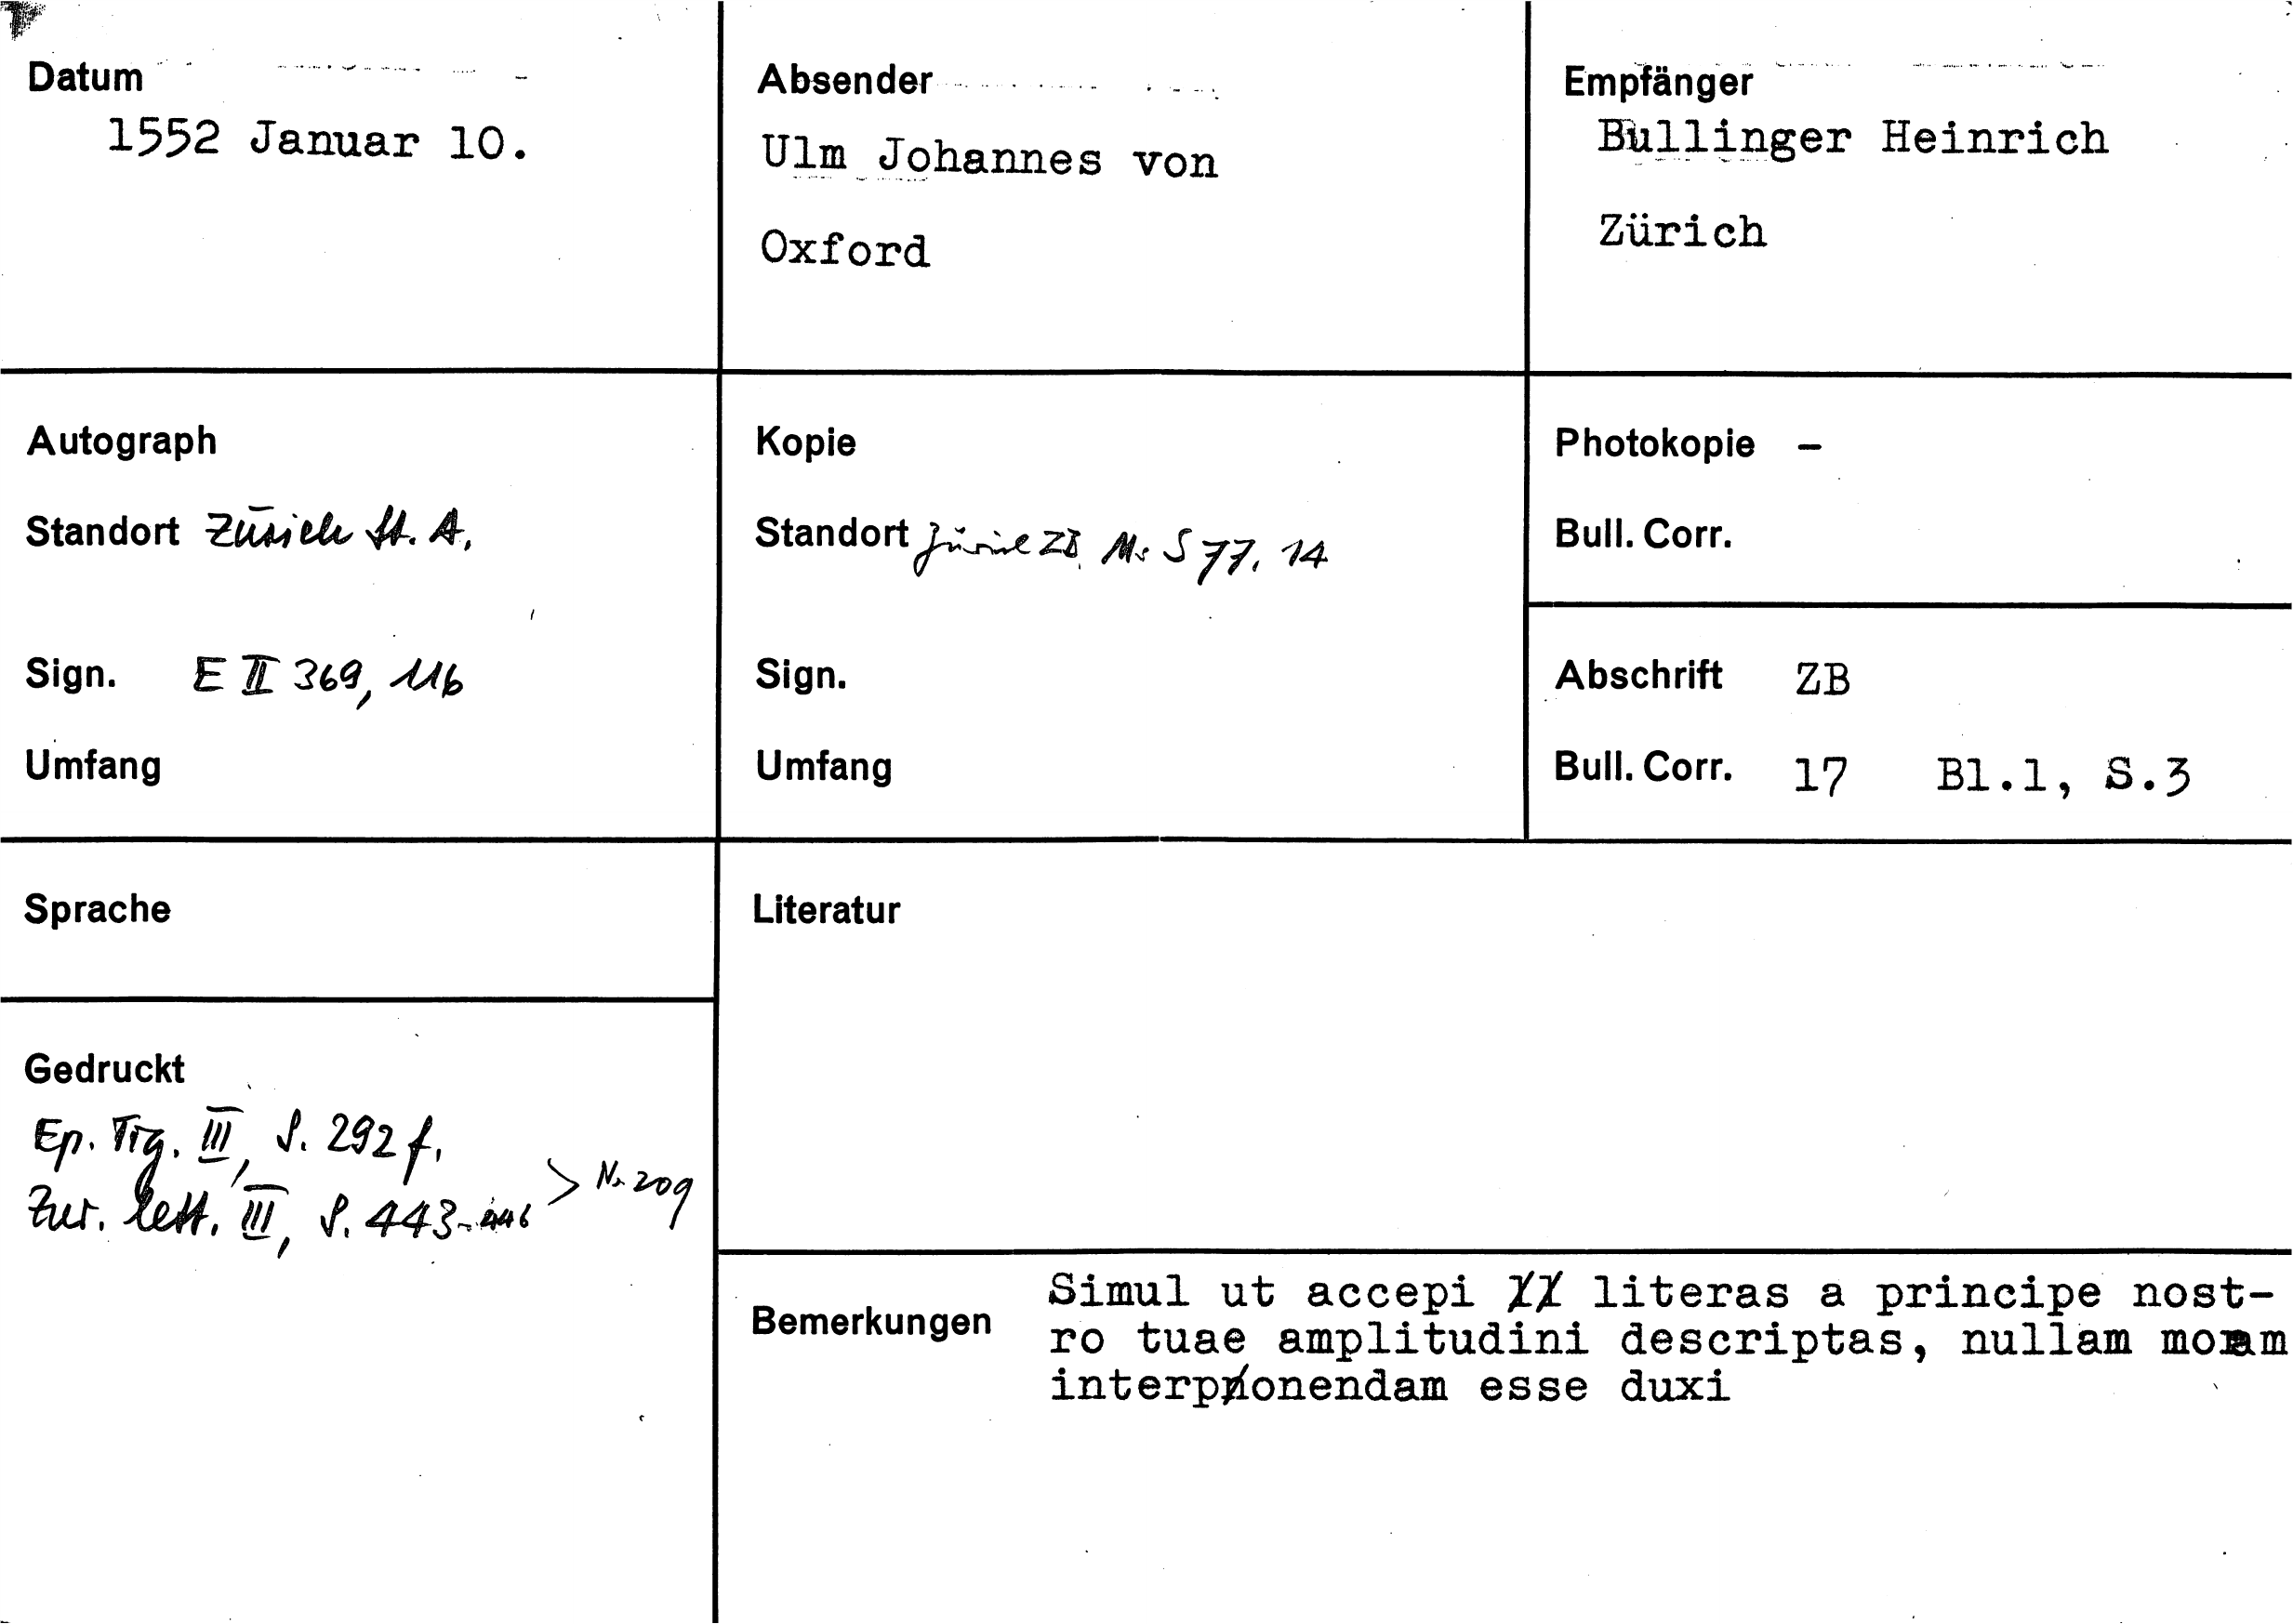 Datum
1552 Januar 10.
Absender
Ulm Johannes von
Oxford
Empfänger
Bullinger Heinrich
Zürich
Autograph
Standort Zürich St. A.
Sign. E II 369, 116
Umfang
Kopie
Standort Zürich ZB Ms S 77. 14
Sign.
Umfang
Photokopie -
Bull. Corr.
Abschrift ZB
Bull. Corr. 17 Bl.1, S.3
Sprache
Literatur
Gedruckt
Ep. Tig. III, S. 292 f.
Zur. lett. III, S. 443-446 > Nr. 209
Bemerkungen
Simul ut accepi literas a principe nost-
ro tuae amplitudini descriptas, nullam moram
interponendam esse duxi